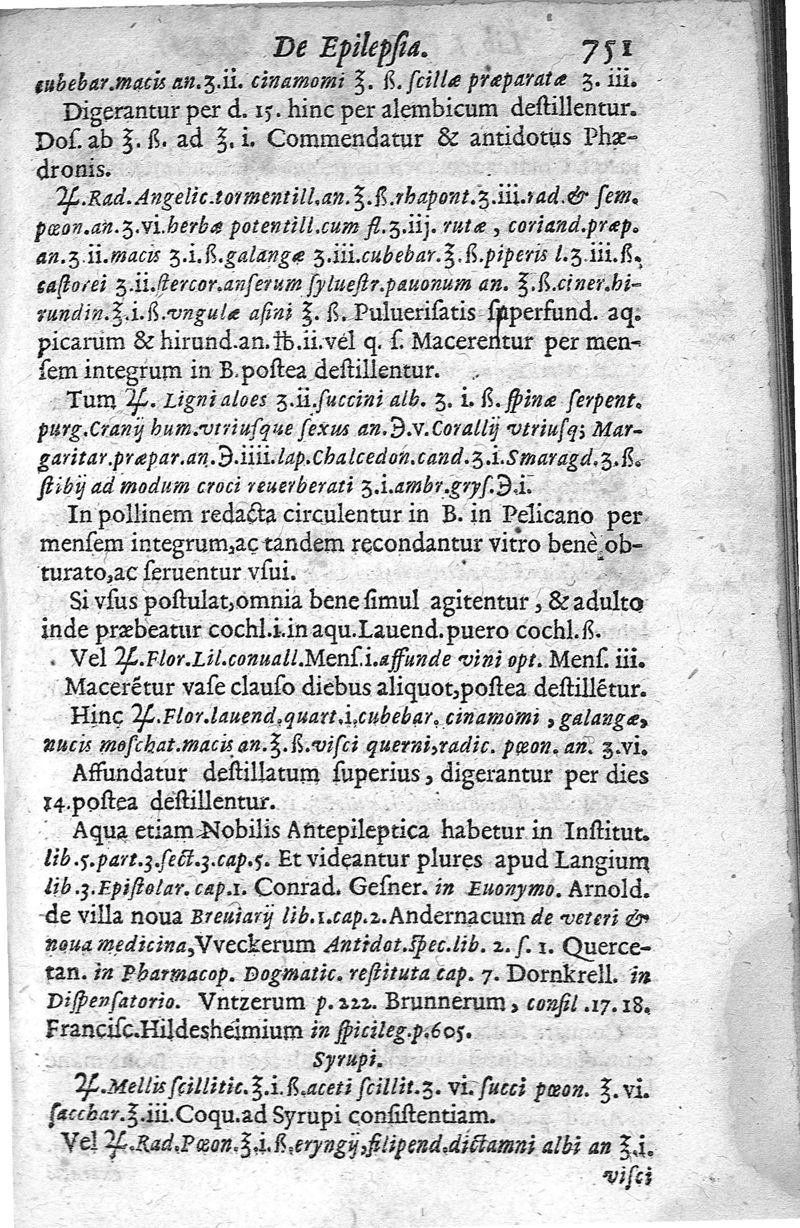 De Epilepsia. 751
cubebar.macis an.ʒ.ii. cinamomi ℥. ß. ſcillæ præparatæ ʒ. iii.
Digerantur per d. 15. hinc per alembicum deſtillentur.
Doſ. ab ℥. ß. ad ℥. i. Commendatur & antidotus Phæ-
dronis.
♃.Rad.Angelic.tormentill.an.℥.ß.rhapont.ʒ.iii.rad.& ſem.
pœon.an.ʒ.vi.herbæ potentill.cum fl.ʒ.iij. rutæ, coriand.præp.
an.ʒ.ii.macis ʒ.i.ß.galangæ ʒ.iii.cubebar.℥.ß.piperis l.ʒ.iii.ß.
caſtorei ʒ.ii.ſtercor.anſerum ſylueſtr.pauonum an. ℥.ß.ciner.hi-
rundin.℥.i.ß.vngulæ aſini ℥. ß. Pulueriſatis ſuperfund. aq.
picarum & hirund.an.℔.ii.vel q. ſ. Macerentur per men-
ſem integrum in B.poſtea deſtillentur.
Tum ♃. Ligni aloes ʒ.ii.ſuccini alb. ʒ. i. ß. ſpinæ ſerpent.
purg.Cranij hum.vtriuſque ſexus an.℈.v.Corallij vtriuſq; Mar-
garitar.præpar.an.℈.iiii.lap.Chalcedon.cand.ʒ.i.Smaragd.ʒ.ß.
ſtibij ad modum croci reuerberati ʒ.i.ambr.gryſ.℈.i.
In pollinem redacta circulentur in B. in Pelicano per
menſem integrum,ac tandem recondantur vitro benè ob-
turato,ac ſeruentur vſui.
Si vſus poſtulat,omnia bene ſimul agitentur, & adulto
inde præbeatur cochl.i.in aqu.Lauend.puero cochl.ß.
Vel ♃.Flor.Lil.conuall.Menſ.i.affunde vini opt. Menſ. iii.
Macerẽtur vaſe clauſo diebus aliquot,poſtea deſtillẽtur.
Hinc ♃.Flor.lauend.quart.i.cubebar. cinamomi, galangæ,
nucis moſchat.macis an.℥.ß.viſci querni,radic. pœon. an. ʒ.vi.
Affundatur deſtillatum ſuperius, digerantur per dies
14.poſtea deſtillentur.
Aqua etiam Nobilis Antepileptica habetur in Inſtitut.
lib.5.part.3.ſect.3.cap.5. Et videantur plures apud Langium
lib.3.Epiſtolar. cap.1. Conrad. Geſner. in Euonymo. Arnold.
de villa noua Breuiarij lib.1.cap.2.Andernacum de veteri &
noua medicina,Vveckerum Antidot.Spec.lib. 2. ſ. 1. Querce-
tan. in Pharmacop. Dogmatic. reſtituta cap. 7. Dornkrell. in
Diſpenſatorio. Vntzerum p.222. Brunnerum, conſil.17.18.
Franciſc.Hildesheimium in ſpicileg.p.605.
Syrupi.
♃.Mellis ſcillitic.℥.i.ß.aceti ſcillit.ʒ. vi. ſucci pœon. ℥.vi.
ſacchar.℥.iii.Coqu.ad Syrupi conſiſtentiam.
Vel ♃.Rad.Pœon.℥.i.ß.eryngij,filipend.dictamni albi an ℥.i.
viſci